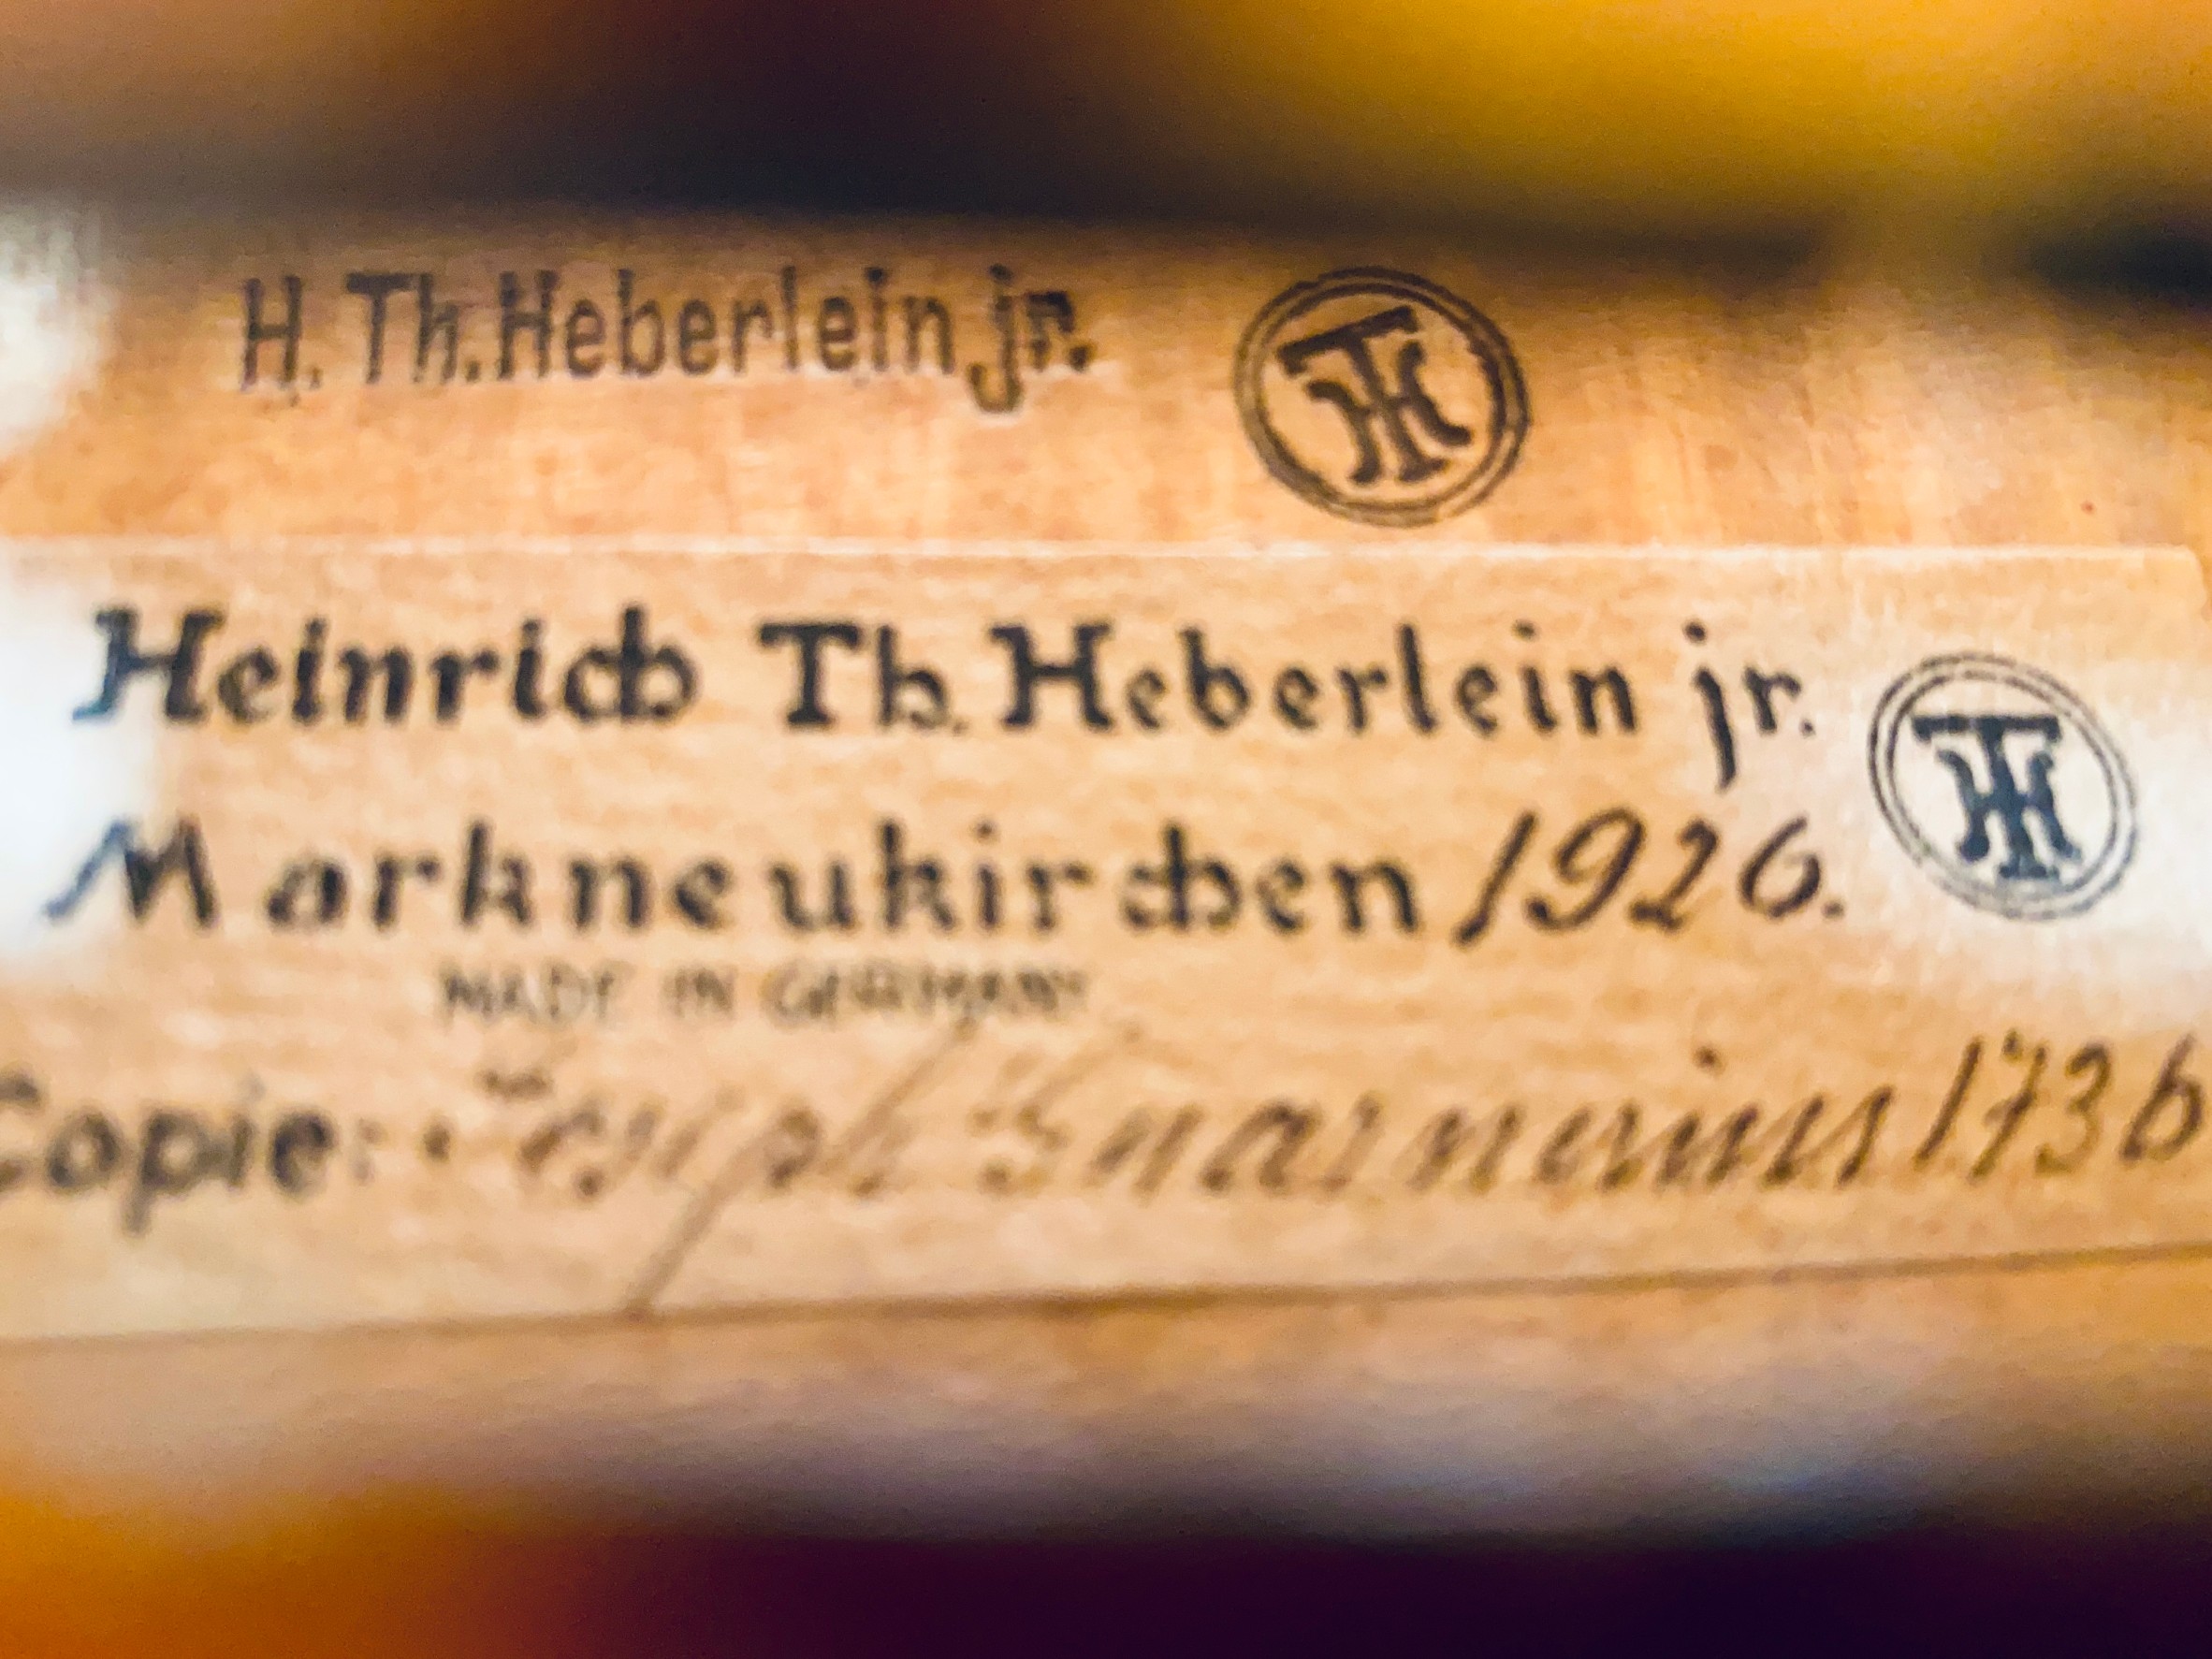 H. Th. Heberlein jr. TH
Heinrich Th. Heberlein jr. TH
Markneukirchen 1926.
MADE IN GERMANY
Copie: Joseph Guarnerius 1736